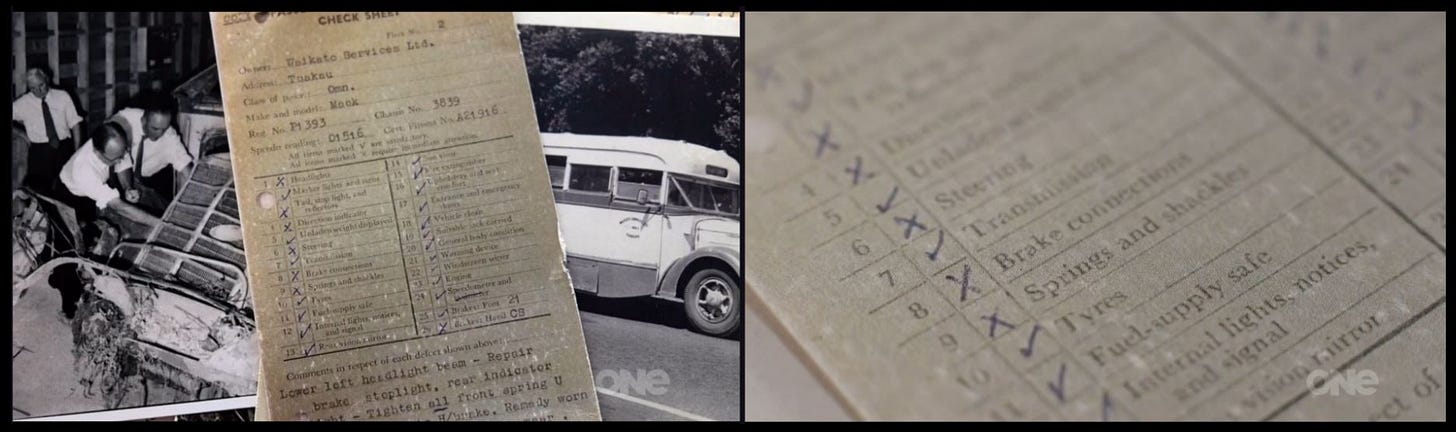 CHECK SHEET
2
Owner: Waikato Services Ltd.
Address: Tuakau
Class of Omn.
Make and model: Mock
Reg No. P1393 Chassis No. 3839
Speedo reading: 01516 Cert. Fitness No. A21916
All items marked V are satisfactory.
All items marked X require immediate attention.
1 X Headlights
Marker lights and
Tail, stop light, and
reflectors
4 X Direction indicator
5 Unladen weight displayed
6 X Steering
7 Transmission
8 X Brake connections
9 X Springs and shackles
10 Tyres
11 Fuel supply safe
12 Internal lights, notices,
and signal
13 Rear vision mirror
14
15 Fire extinguisher
16 Upholstery and seat
17 Entrance and emergency
doors
18 Vehicle clean
19 Suitable jack carried
20 General body condition
21 Warning device
22 Windscreen wiper
23 Engine
24 Speedometer and
25 Brakes: Foot 21
26 X Brakes: Hand CS
Comments in respect of each defect shown above:
Lower left headlight beam - Repair
brake stoplight, rear indicator
light - Tighten all front spring U
H/brake. Remedy worn
ONE
4
5
6
7
8
9
10
Steering
Transmission
Brake connections
Springs and shackles
Tyres
Fuel supply safe
Internal lights, notices,
and signal
vision mirror
23
24
ect of
ONE